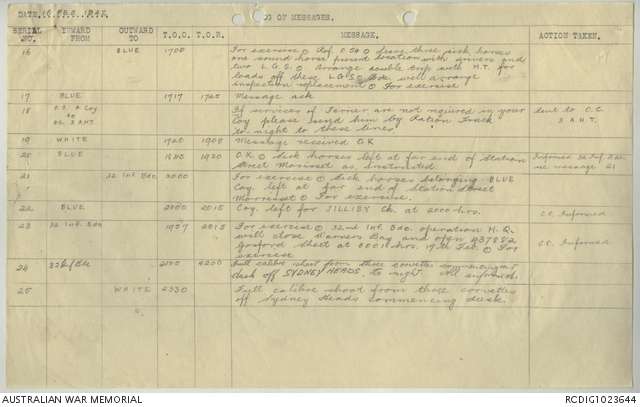 DATE. 16 FEB. 1942. LOG OF MESSAGES.
SERIAL NO. INWARD FROM OUTWARD TO T.O.O. T.O.R. MESSAGE. ACTION TAKEN.
16 BLUE 1700 For exercise
one sound horse present location with drivers and
two L.G.S. Arrange double crop with M.T. for
loads off these L.G.S. Bde. will arrange
inspection replacement For exercise
17 BLUE 1717 1725 Message ack
18 If services of Ferrier are not required in your
O.C. A Coy Coy please send him by Ration Truck Sent to O.C.
to to-night to these lines. 3 A.H.T.
O.C. 3 AHT
19 WHITE 1905 Message received O.K.
20 BLUE 1840 1920 O.K. sick horses left at far end of Station
Street Morriset as instructed. message 21
21 32 Inf. Bde. 2000 For exercise Sick horses belonging BLUE
Coy. left at far end of Station Street
Morresset For exercise.
22 BLUE 2000 2015 Coy. left for JILLIBY Ck. at 2000 hrs. C.C. Informed
23 32 Inf. Bde 1957 2015 For exercise 32nd Inf. Bde. operation H.Q.
will close Warners Bay and open
Gosford Sheet at 0001 hrs. 17th Feb. For C.C. Informed
exercise
24 32 Inf Bde 2200 Full calibre shoot from three corvettes commencing
dusk off SYDNEY HEADS to night. All informed.
25 WHITE 2330 Full calibre shoot from three corvettes
off Sydney Heads commencing dusk.
AUSTRALIAN WAR MEMORIAL RCDIG1023644